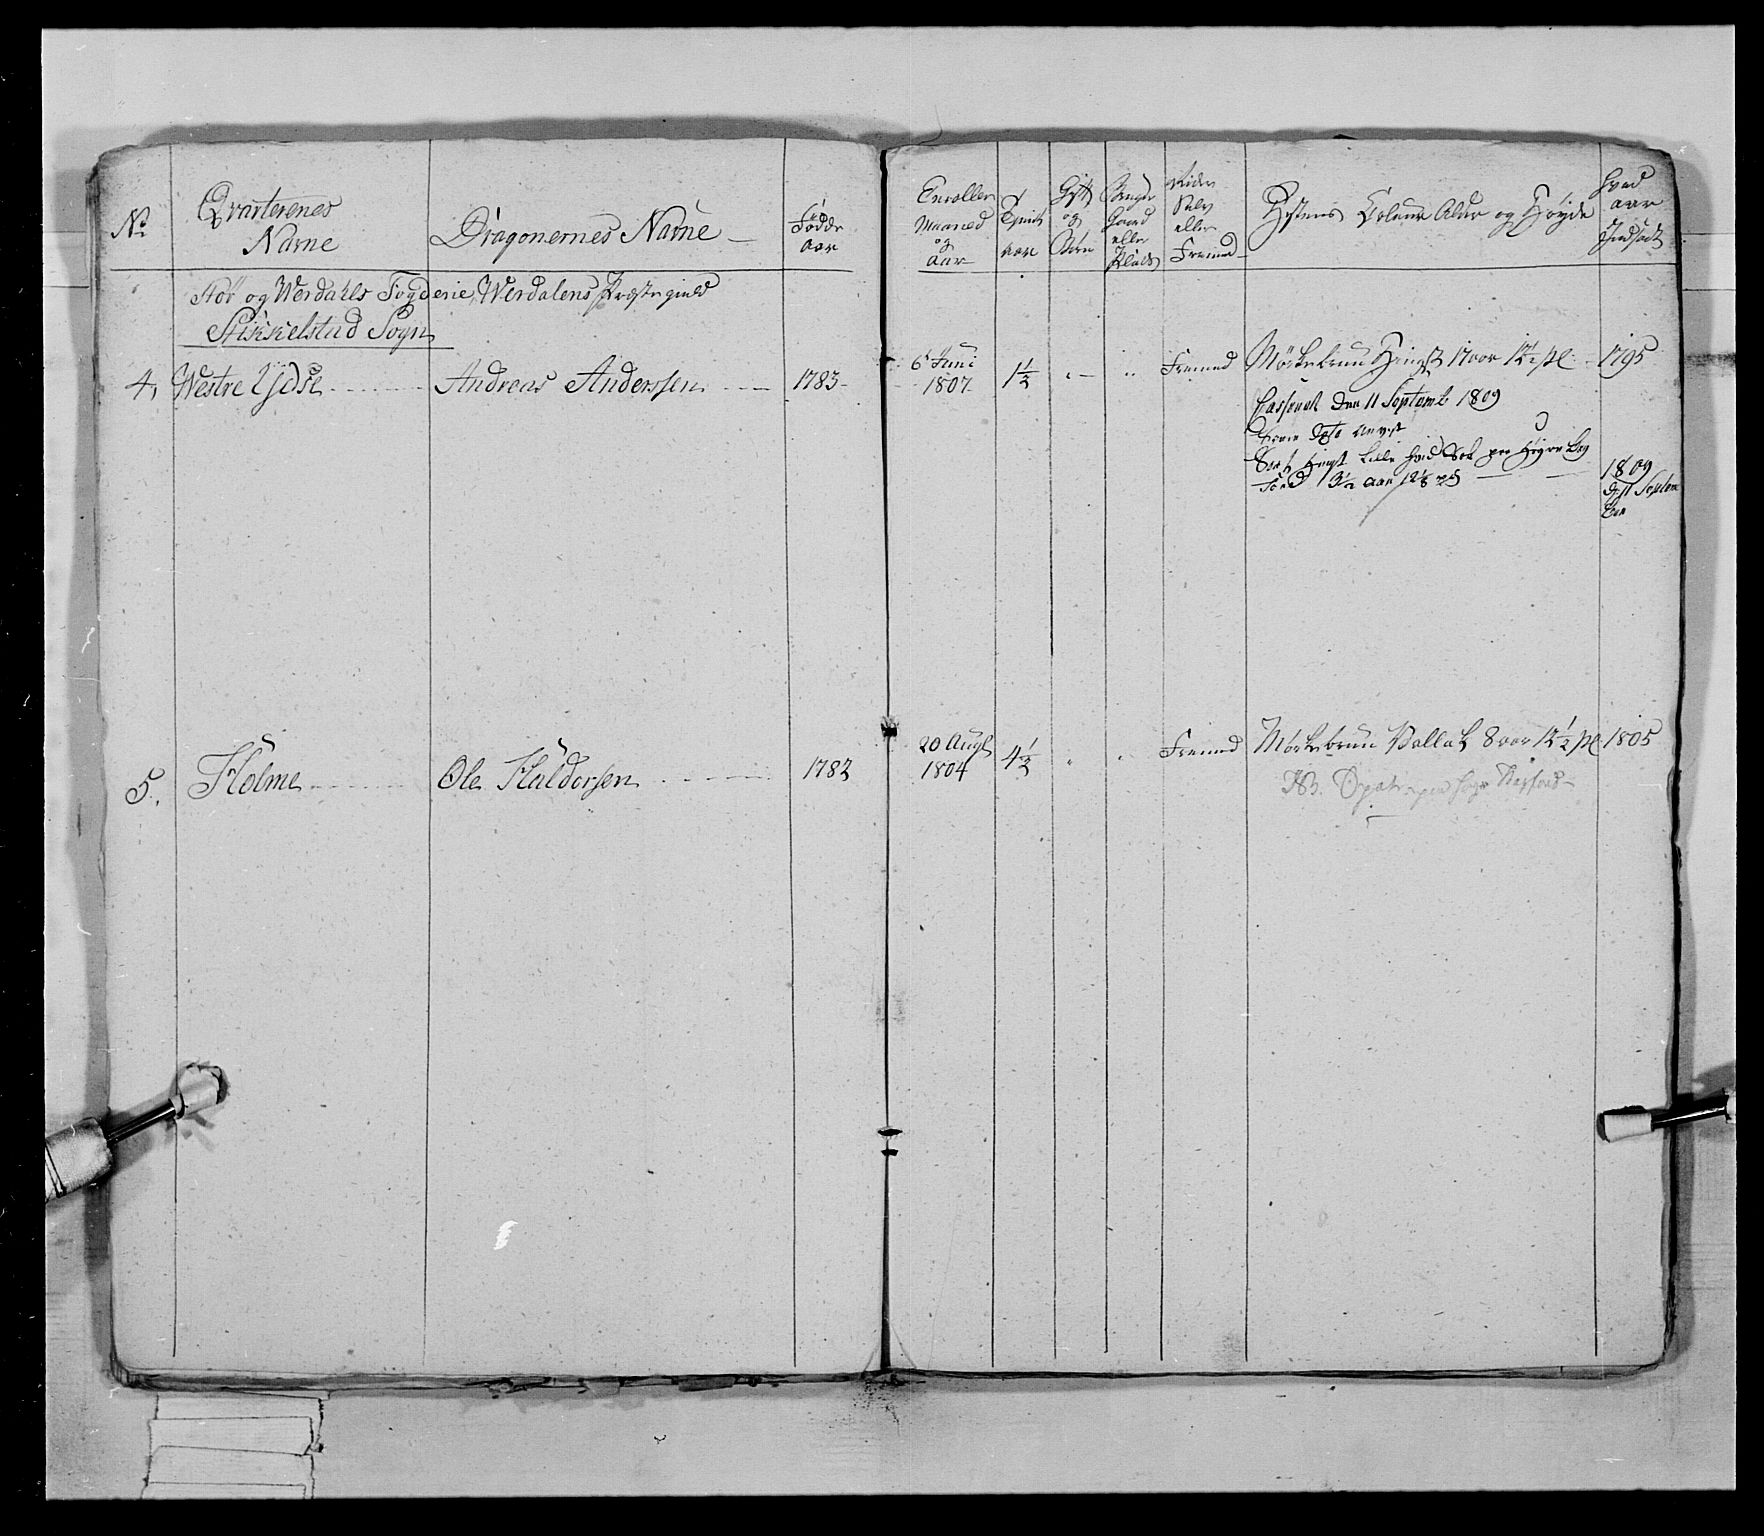 No
Qvarterenes
Navne
Dragonernes Navne
Fødde
aar
Enroller
Maaned
og
aar
Tjenst
aar
Gift
og
Børn
Bruger
Gaard
eller
Plads
Rider
Selv
eller
Fremed
Hestens Coleur Alder og Høyde
Hvad
aar
Indsadt
Stør og Werdahls Fogderie, Werdalens Præstegield
Stikkelstad Sogn
4, Westre Ydse Andreas Anderssen 1783 6t Juni 1807 1½ Fremed Mørkebrun Hingst 17 aar 12½ pl: 1795
Casseret den 11 Septemb 1809
dato
Sort Hingst Lille hvid Høyre Bag
3½ aar 12⅛
1809
d: 11 Septem
ber
5. Holme Ole Haldorsen 1782 20 Augt 1804 4½ Fremed Mørkebrun Vallak 8 aar 12½ pl 1805
NB.